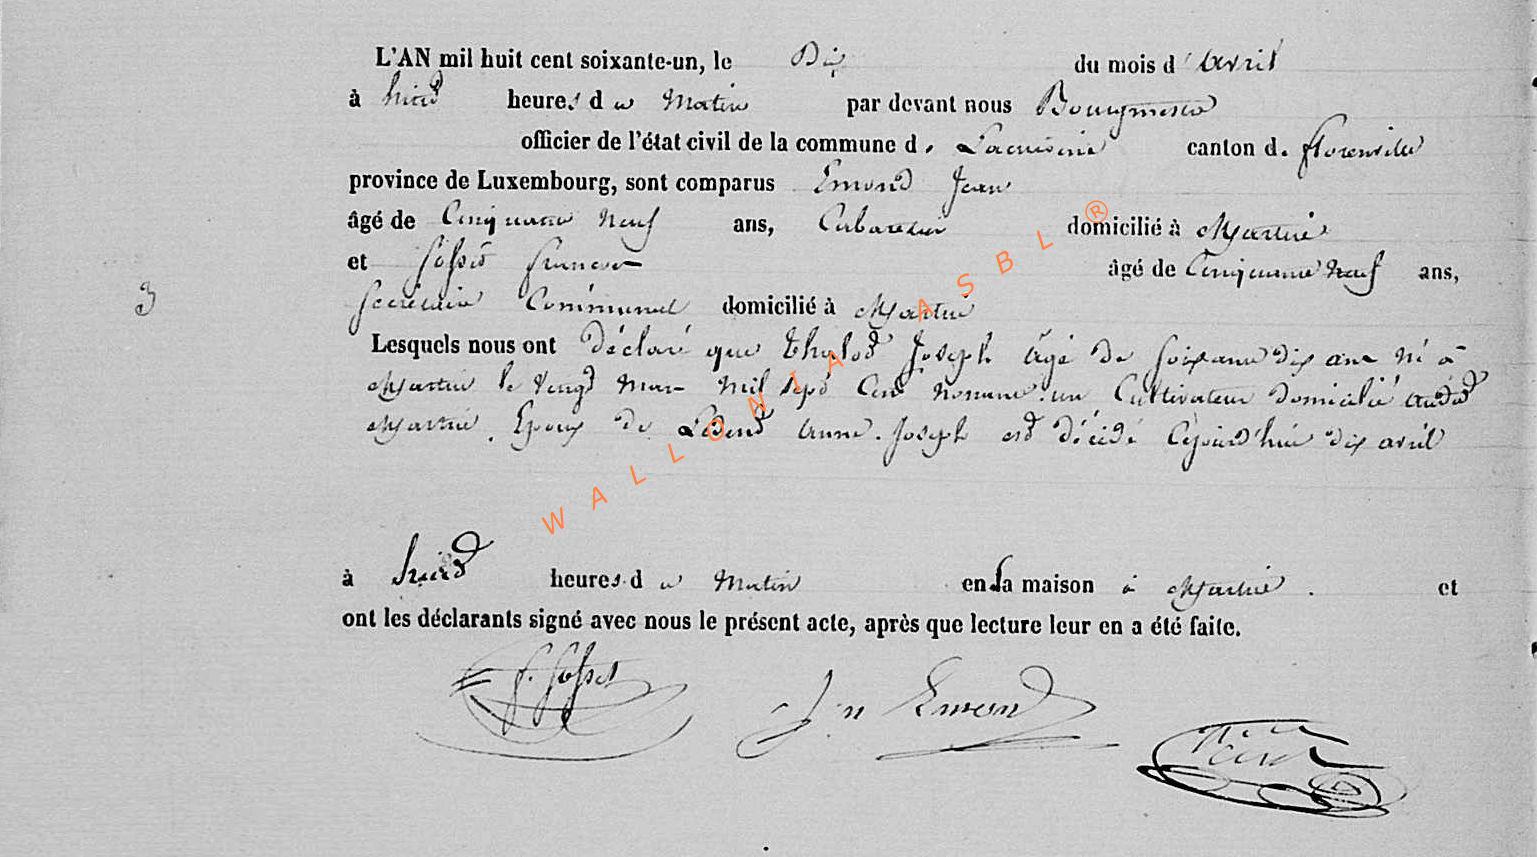 L'AN mil huit cent soixante-un, le Dix du mois d'Avril
à huit heures du Matin par devant nous Bourgmestre
officier de l'état civil de la commune de Lacuisine canton de florenville
province de Luxembourg, sont comparus Emond Jean
âgé de Cinquante Neuf ans, Cabaretier domicilié à Martué
et Gosset francois âgé de Cinquante Neuf ans,
3
Secrétaire Communal domicilié à Martué
Lesquels nous ont Déclaré que Joseph âgé de soixante dix ans Né à
Martué le Vingt Mars Mil sept Cent Nonante un Cultivateur domicilié audit
Martué. Epoux de Anne Joseph est décédé Cejourd'hui dix avril
à huit heures du Matin en sa maison à Martué. et
ont les déclarants signé avec nous le présent acte, après que lecture leur en a été faite.
f. Gosset Jn Emond
WALLONIA ASBL ®